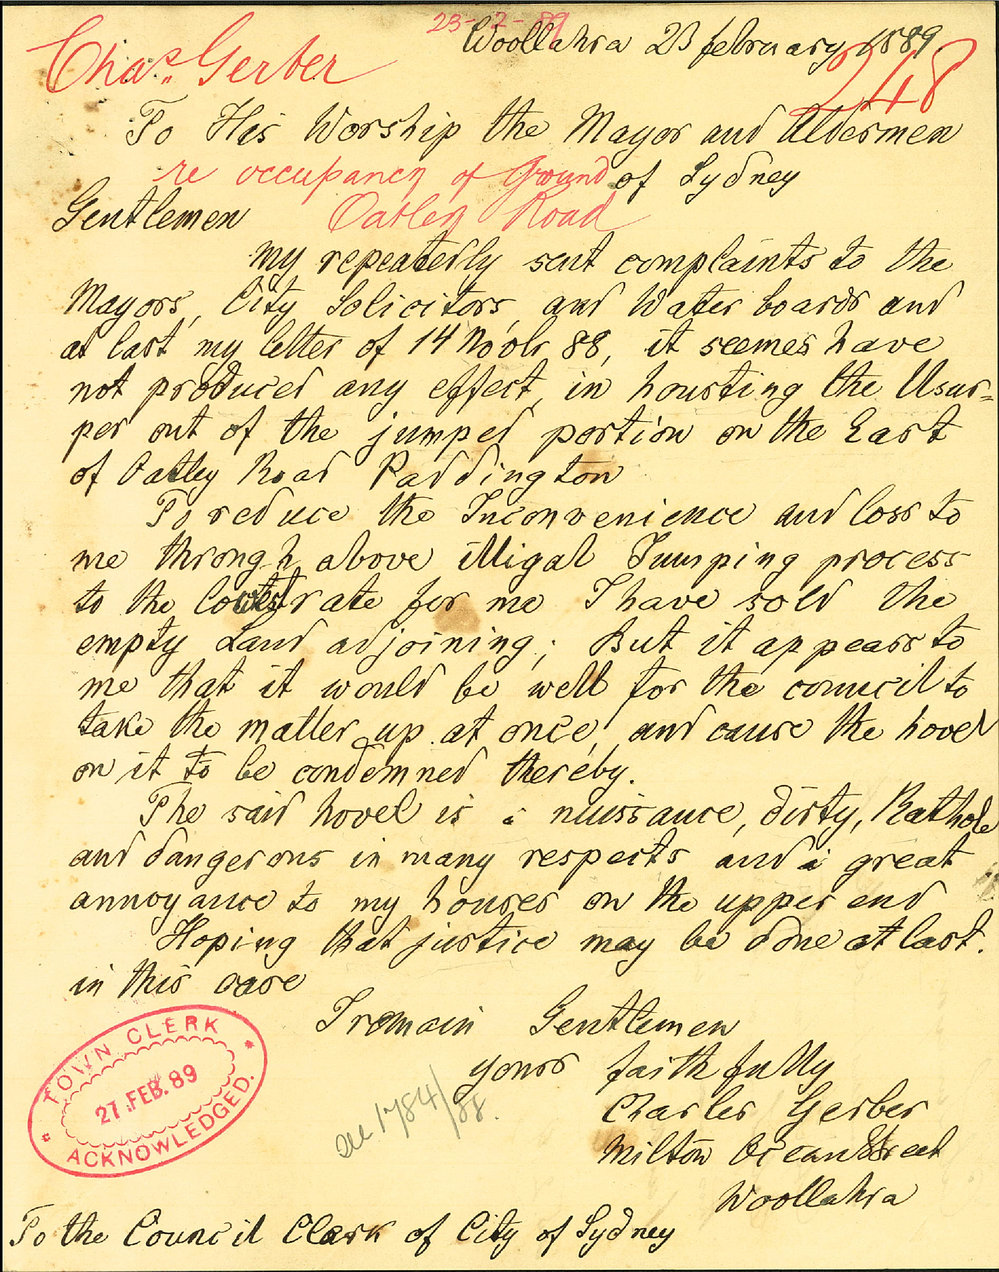 23-2-89
Woollahra 23 february 1889
Chas. Gerber
248
To His Worship the Mayor and Aldermen
re occupancy of Ground
of Sydney
Gentlemen
Oatley Road
My repeatedly sent complaints to the
Mayors, City Solicitors, and Water boards and
at last my letter of 14 Novbr 88, it seemes have
not produced any effect, in housting the Usur=
per out of the jumped portion on the East
of Oatley Road Paddington
To reduce the Inconvenience and loss to
me through above illigal Jumping process
to the lowest rate for me I have sold the
empty Land adjoining; But it appears to
me that it would be well for the council to
take the matter up at once, and cause the hovel
on it to be condemned thereby.
The said hovel is a nuissance, dirty, Rathole
and dangerous in many respects and a great
annoyance to my houses on the upper end
Hoping that justice may be done at last.
in this case
I remain Gentlemen
yours faithfully
Charles Gerber
Milton Ocean Street
Woollahra
TOWN CLERK
27 FEB. 89
ACKNOWLEDGED.
1784/88.
To the Council Clerk of City of Sydney